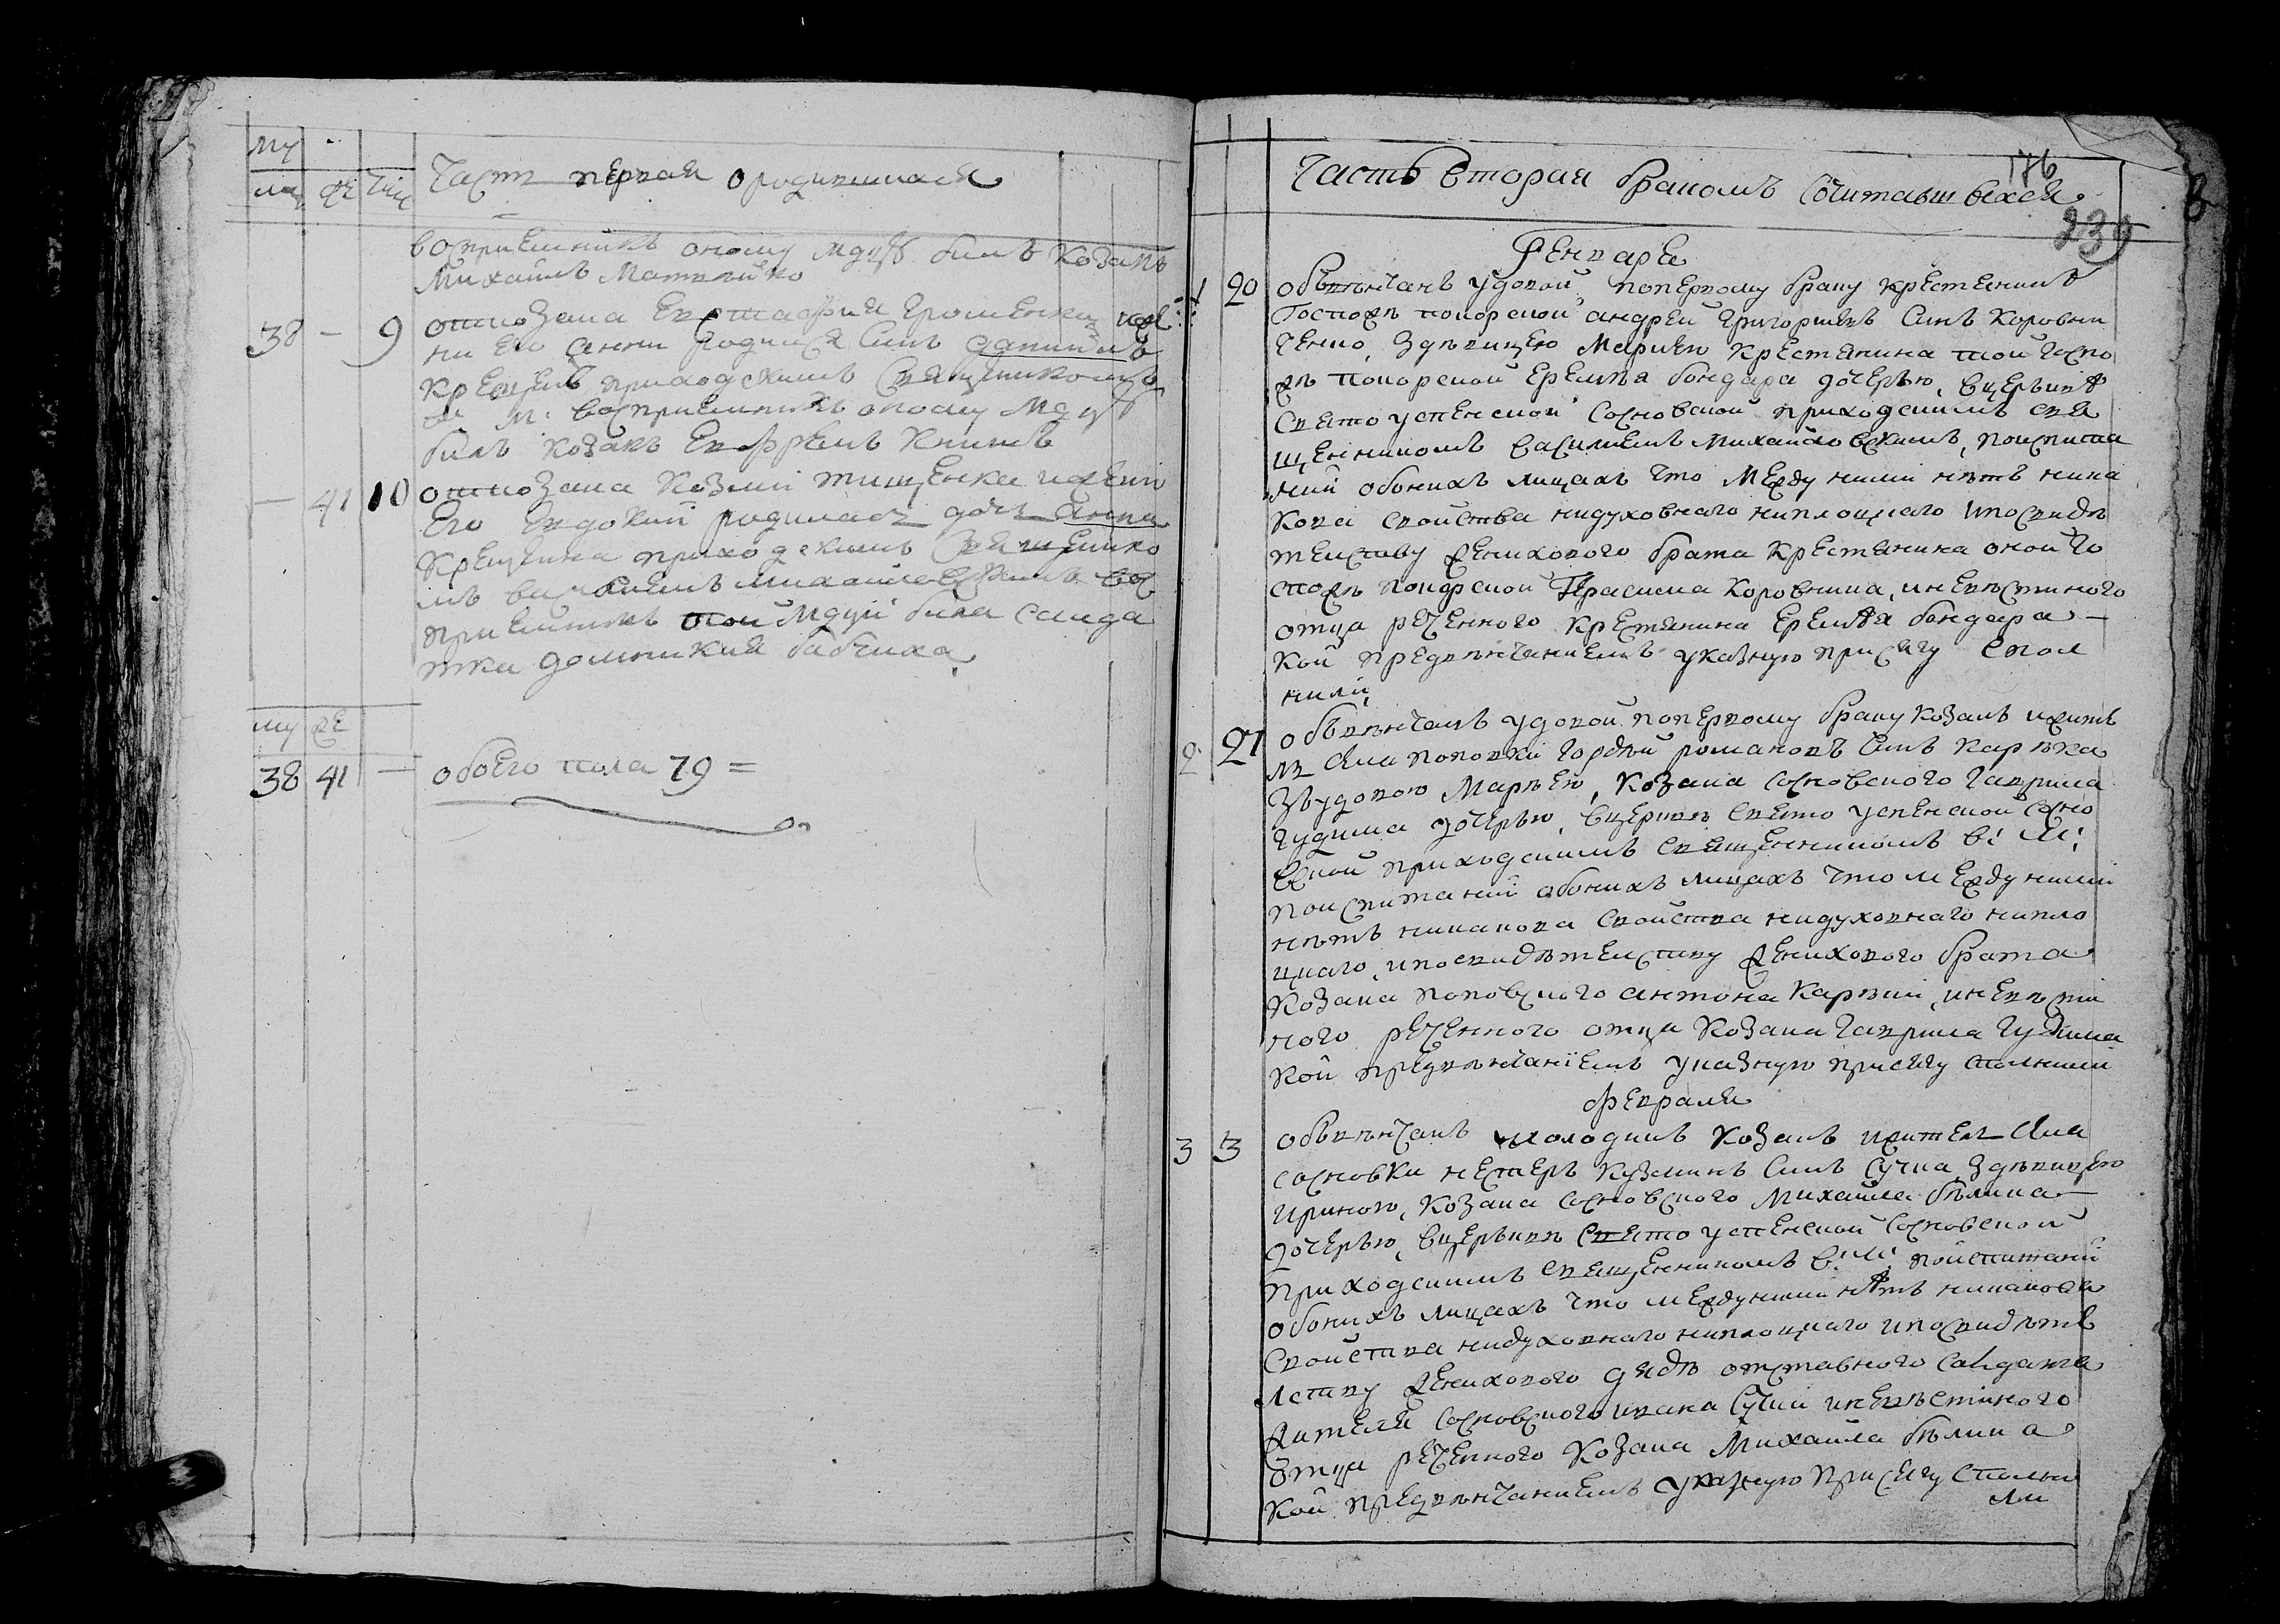 му
му же чис
Часть первая о родившихся
восприемникъ оному мдцу билъ козакъ
Михаилъ Матвейко
38 — 9 от козака Евстафия Ярошенка и же
ни его Анни родился синъ Даниилъ
крещенъ приходскимъ священикомъ
в: м: восприемникъ оному мдцу
билъ козакъ Евфремъ Книшъ
— 41 10 от козака Козми Тищенка и жени
его Евдокии родилась дочъ Анна
крещенна приходскимъ священико
мъ василиемъ михайловскимъ вос
приемникъ оной мдци била
Домникия бабчиха
му же
38 41 — обоего пола 79 =
176
Часть вторая бракомъ сочитавшвихся
239
Генваре
1 20 обвѣнчанъ удовой поперво​му браку крестянинъ
Господѣ покорской андрей григориевъ синъ коровни
ченко, здѣвицею Мариею крестянина той госпо
дѣ покорской Еремѣя бондара дочерью, вцеркивѣ
свято успенской сосновской приходскимъ свя
щенникомъ василиемъ михайловскимъ, поиспита
нии обоникъ лицахъ что между ними нѣтъ ника
кова свойства нидуховнаго ниплоцкаго ипосвидѣ
телству женихового брата крестянина оной го
сподѣ покорской Герасима коровника, иневѣстиного
отца реченного крестянина Еремѣя бондара —
кои предвѣнчаниемъ указную присягу спол
нили,
2 27 обвѣнчанъ удовой поперво​му браку козакъ ижите
лъ села поповки гордѣй романовъ синъ карпѣка
зъудовою Марѣею, козака сосновского гаврила
гудима дочерью, вцерквѣ свято успенской сосно
вской приходскимъ священникомъ в: м:
поиспитании обоникъ лицахъ что между ними
нѣтъ никакова свойства нидуховнаго нипло
цкаго, ипосвидѣтелству женихового брата
козака поповского антона карпѣки, иневѣсти
ного реченного отца козака гаврила гудима
кои предвѣнчаниемъ указную присягу сполнили
февраля
3 3 обвѣнчанъ молодикъ козакъ ижителъ села
сосновки нестеръ кузминъ синъ сучка здѣвицею
ириною, козака сосновского михайла бѣлика —
дочерью, вцерквѣ свято успенской сосновской
приходскимъ священникомъ в: м: поиспитании
обоникъ лицахъ что между ними нѣтъ никакова
свойства нидуховнаго ниплоцкаго ипосвидѣте
лству женихового дядѣ отставного
жителя сосновского ивана сучки иневѣстиного
отца реченного козака михайла бѣлика
кои предвѣнчаниемъ указную присягу сполни
ли